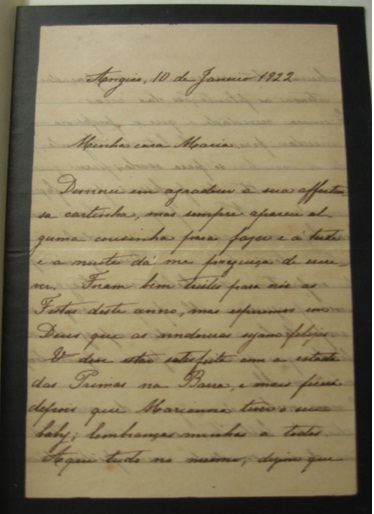 Angra, 10 de Janeiro 1922
Minha cara Maria
Demorei em agradecer a sua affectuo
sa cartinha, mas sempre aparece al
guma cousinha para fazer e á tarde
e a noite dá me preguiça de escre
ver. Foram bem tristes para nós as
Festas deste anno, mas esperemos em
Deus que as vindouras sejam felizes
V deve estar satisfeita com a estada
das Primas na Barra, e mais ficará
depois que Marianna tiver o seu
baby; lembranças minhas a todos.
Aqui tudo no mesmo, dizem que